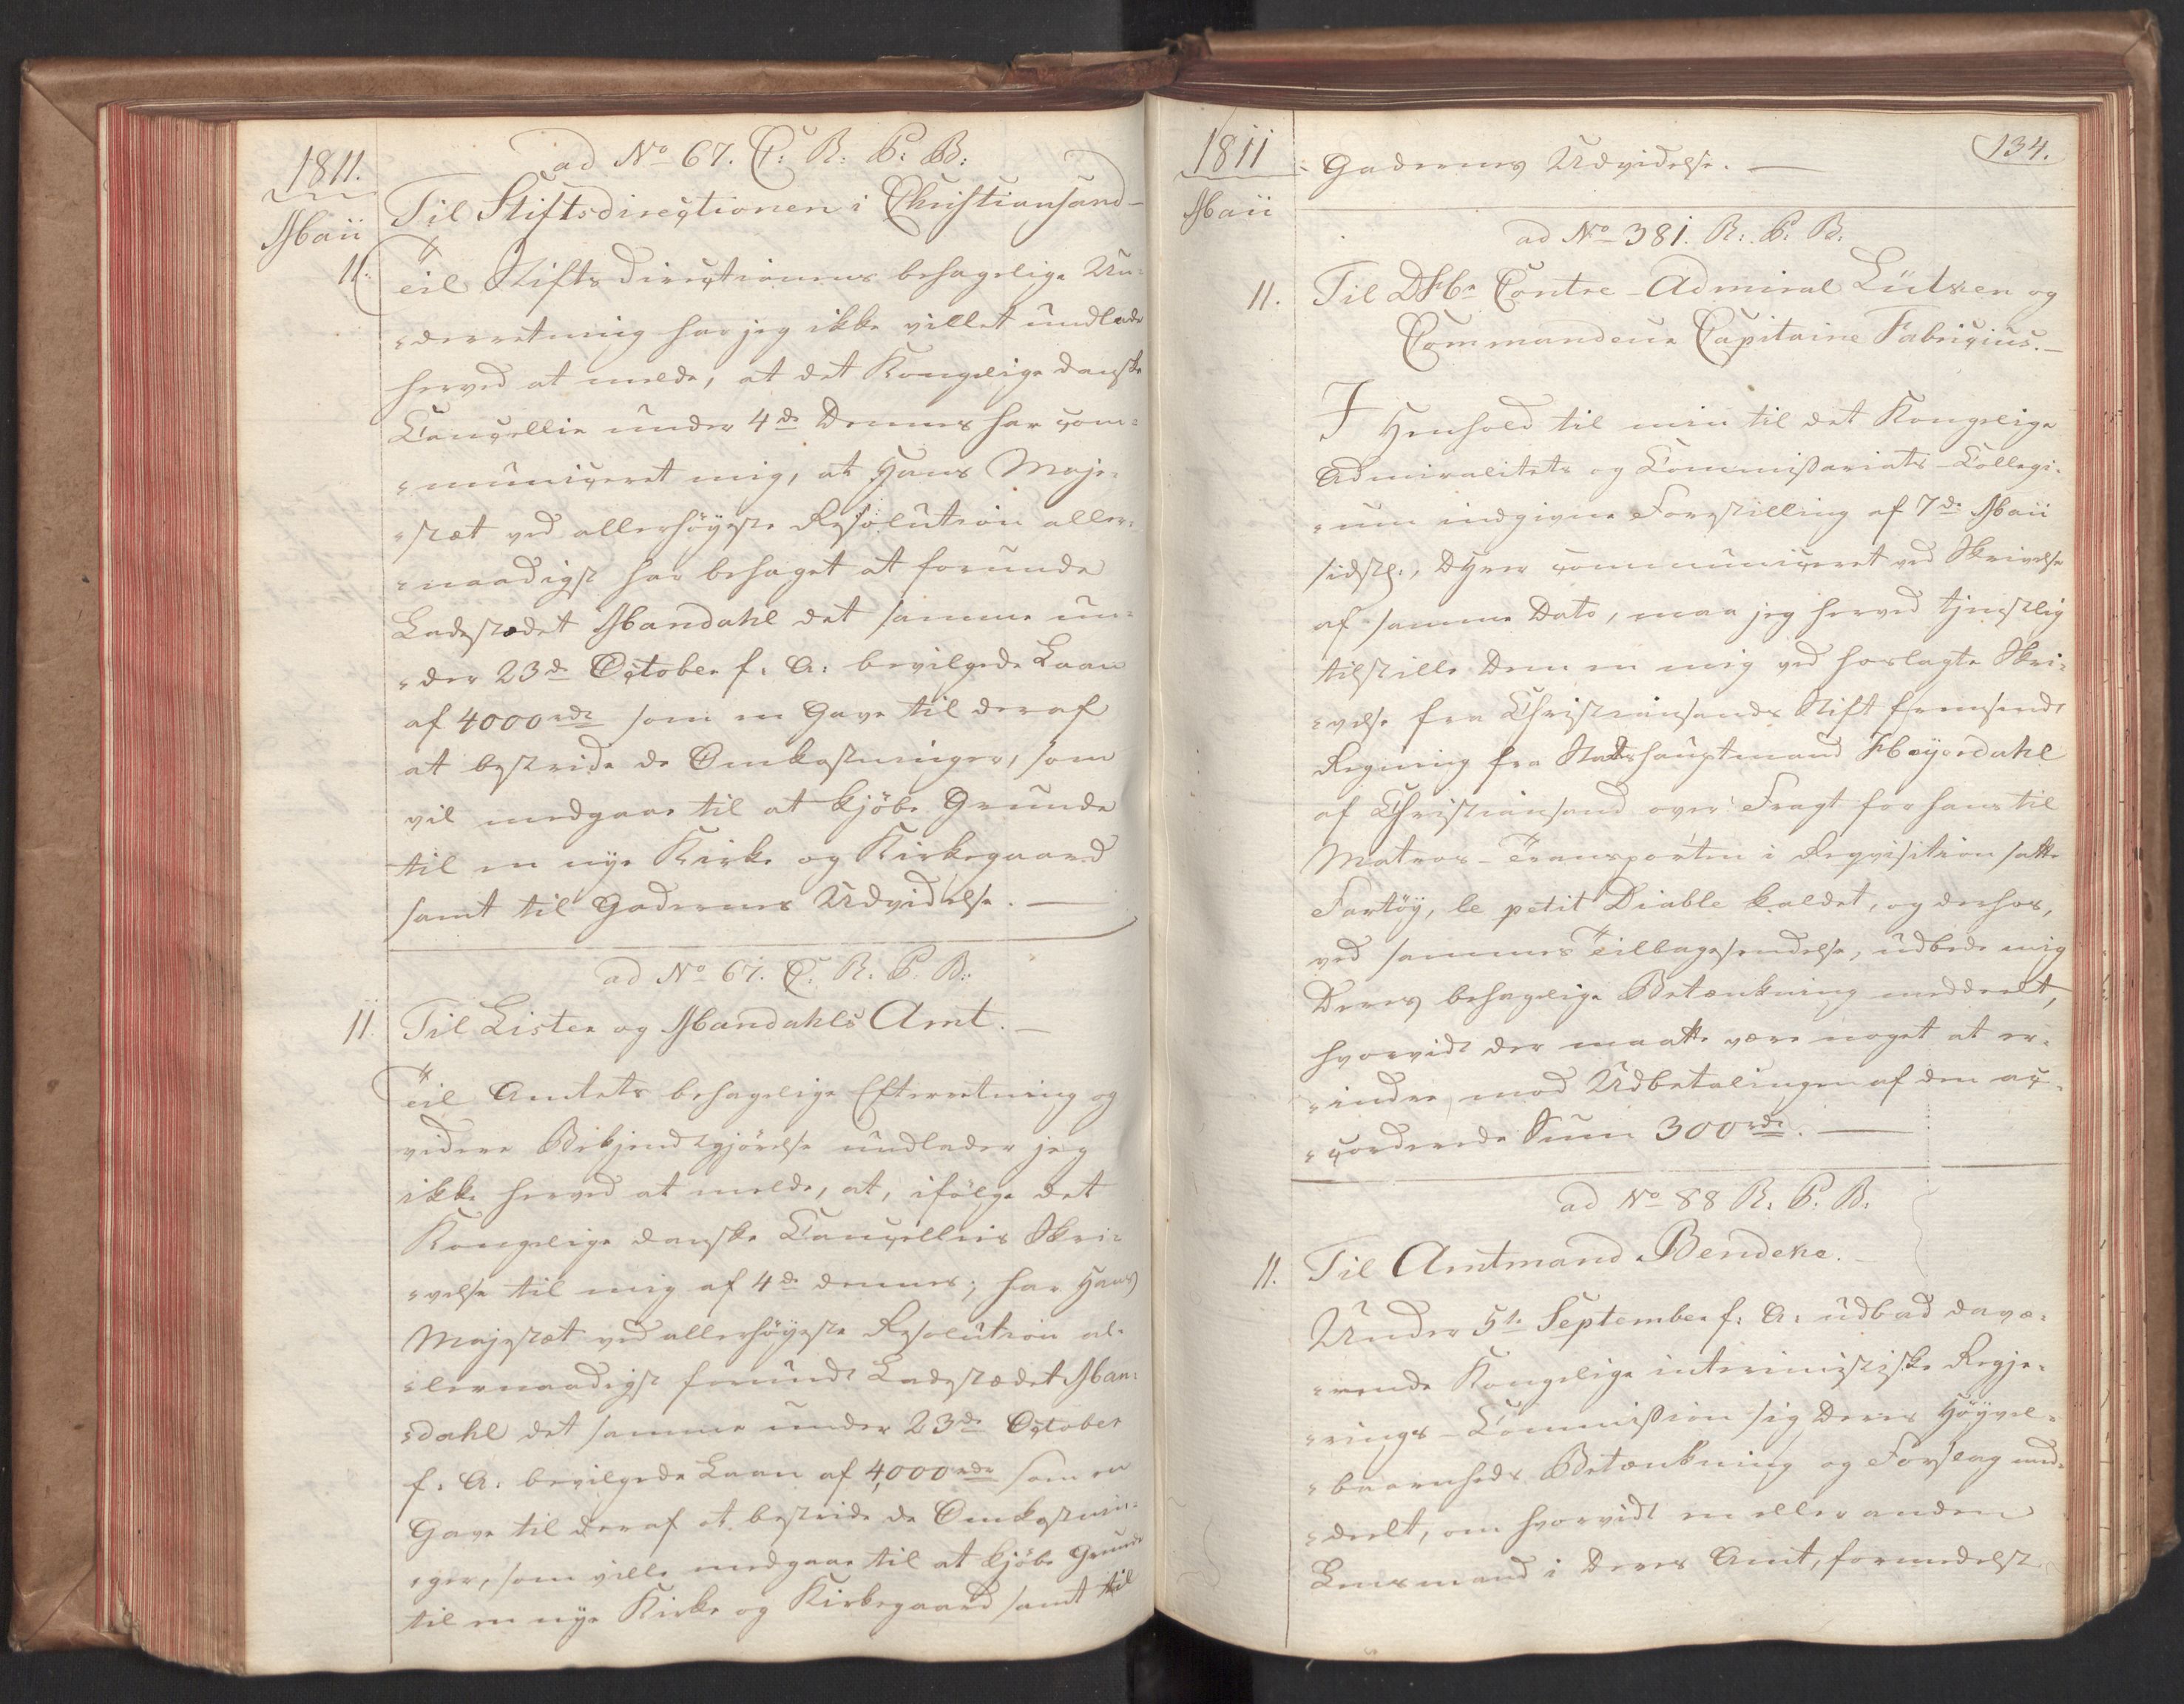 1811.
Maii
ad No 67. C: R: P: B:
Til Stiftsdirectionen i Christiansand
11. Til Stiftsdirectionens behagelige Un-
derretning har jeg ikke villet undlade
herved at melde, at det Kongelige danske
Cancellie under 4de Dennes har com-
municeret mig, at Hans Maje-
stæt ved allerhöyeste Resolution aller-
naadigst har behaget at forunde
Ladestædet Mandahl det samme un-
der 23de October f: A: bevilgede Laan
af 4000 rdr som en Gave til deraf
at bestride de Omkostninger, som
vil medgaae til at kjöbe Grunde
til en nye Kirke og Kirkegaard
samt til Gadernes Udvidelse. —
ad No 67. C. R: P. B:
11. Til Lister og Mandahls Amt. —
Til Amtets behagelige Efterretning og
videre Bekjendtgjörelse undlader jeg
ikke herved at melde, at, ifölge det
Kongelige danske Cancellies Skri-
velse til mig af 4de dennes; har Hans
Majestæt ved allerhöyeste Resolution al-
lernaadigst forundt Ladestædet Man-
dahl det samme under 23de October
f: A: bevilgede Laan af 4,000 rdr som en
Gave til deraf at bestride de Omkostnin-
ger, som ville medgaae til at kjöbe Grunde
til en nye Kirke og Kirkegaard samt til
1811
Maii
134.
Gadernes Udvidelse. —
ad No 381. R: P. B:
11. Til DHr Contre-Admiral Lütken og
Commandeur Capitaine Fabricius. —
I Henhold til min til det Kongelige
Admiralitets og Commissariats-Collegi-
um indgivne Forestilling af 7de Maii
sidstl:, DHrer communiceret ved Skrivelse
af samme Dato, maa jeg herved tjenstlig
tilstille Dem en mig ved hoslagte Skri-
velse fra Christiansands Stift fremsendt
Regning fra Stadshauptmand Heyerdahl
af Christiansand over Fragt for hans til
Matros-Transporten i Reqvisition satte
Fartöy, le petit Diable kaldet, og derhos,
ved sammes Tilbagesendelse, udbede mig
Deres behagelige Betænkning meddeelt,
hvorvidt der maatte være noget at er-
indre mod Udbetalingen af den ac-
corderede Sum 300 rdr. —
ad No 88 R: P: B.
11. Til Amtmand Bendeke.
Under 5te September f: A: udbad davæ-
rende Kongelige interimistiske Regje-
rings-Commission sig Deres Höyvel-
baarenheds Betænkning og Forslag med-
deelt, om hvorvidt en eller anden
Lensmand i Deres Amt, formedelst